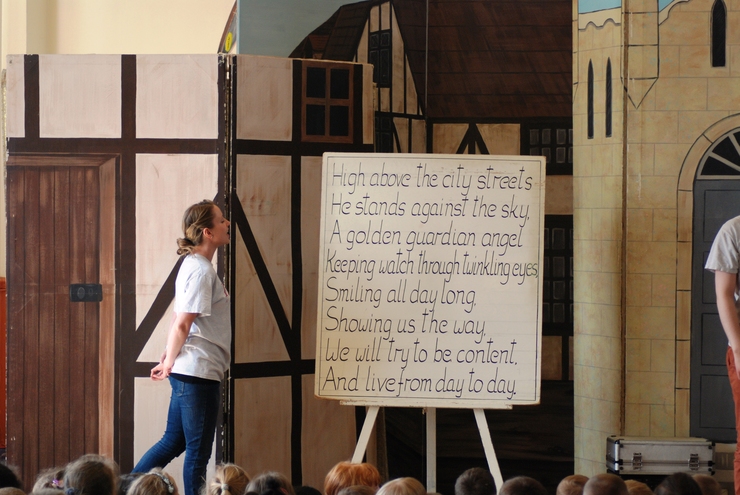 High above the city streets
He stands against the sky,
A golden guardian angel
Keeping watch through twinkling eyes,
Smiling all day long,
Showing us the way,
We will try to be content,
And live from day to day.